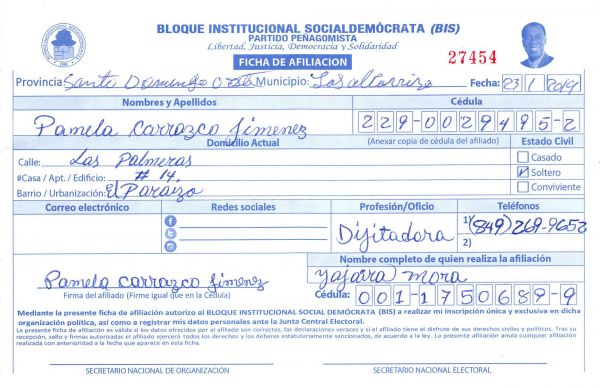 BLOQUE INSTITUCIONAL SOCIALDEMÓCRATA (BIS)
PARTIDO PEÑAGOMISTA
Libertad, Justicia, Democracia y Solidaridad
FICHA DE AFILIACION
27454
Provincia: Santo Domingo Oeste Municipio: Los alcarrizo Fecha: 23/1/2019
Nombres y Apellidos Cédula
Pamela Carrazco Jimenez 229-0029495-2
Domicilio Actual (Anexar copia de cédula del afiliado) Estado Civil
Calle: Las Palmeras Casado
#Casa / Apt. / Edificio: # 14. Soltero
Barrio / Urbanización: El Paraizo Conviviente
Correo electrónico Redes sociales Profesión/Oficio Teléfonos
Dijitadora 1) (849) 269-9652
2)
Nombre completo de quien realiza la afiliación
Pamela Carrazco Jimenez Yajaira Mora
Firma del afiliado (Firme igual que en la Cédula) Cédula: 001-1750689-9
Mediante la presente ficha de afiliación autorizo al BLOQUE INSTITUCIONAL SOCIAL DEMÓCRATA (BIS) a realizar mi inscripción única y exclusiva en dicha
organización política, así como a registrar mis datos personales ante la Junta Central Electoral.
La presente ficha de afiliación es válida si los datos ofrecidos por el afiliado son correctos, las declaraciones veraces y si el afiliado tiene el disfrute de sus derechos civiles y políticos. Tras su
recepción, sello y firmas autorizadas el afiliado ejercerá todos los derechos y los deberes estatutariamente sancionados, de acuerdo a la ley. La presente afiliación anula cualquier afiliación
realizada con anterioridad a la fecha que aparece en esta ficha.
SECRETARIO NACIONAL DE ORGANIZACIÓN SECRETARIO NACIONAL ELECTORAL